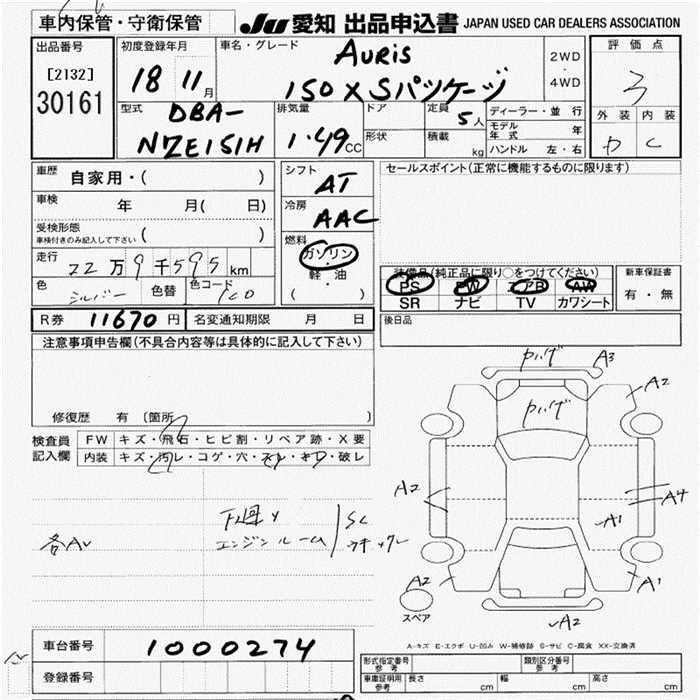 車内保管・守衛保管
JU 愛知 出品申込書 JAPAN USED CAR DEALERS ASSOCIATION
出品番号
[2132]
30161
初度登録年月
18 11月
車名・グレード
AURIS
150 X Sパッケージ
2WD
・
4WD
評価点
3
外装 内装
D C
型式
DBA-
NZE151H
排気量
1.49CC
ドア
形状
定員
5人
積載 kg
ディーラー・並行
モデル年式 年
ハンドル 左・右
車歴
自家用・( )
車検 年 月( 日)
受検形態
車検付きのみ記入して下さい ( )
走行
22万9千595km
色
シルバー
色替
色コード
1C0
シフト
AT
冷房
AAC
燃料
ガソリン
・
軽・油
( )
セールスポイント(正常に機能するものに限ります)
装備品(純正品に限り○をつけてください)
PS PW エアB AW
SR ナビ TV カワシート
新車保証書
有・無
R券 11670円
名変通知期限 月 日
後日品
注意事項申告欄(不具合内容等は具体的に記入して下さい)
修復歴 有 〔箇所 〕
検査員
記入欄
FW キズ・飛石・ヒビ割・リペア跡・X要
内装 キズ・汚レ・コゲ・穴・スレ・キレ・破レ
各AU
下廻り
エンジンルーム
SC
A3
A2
A2
A4
A1
A2
A1
A2
スペア
A-キズ E-エクボ U-凹み W-補修跡 S-サビ C-腐食 XX-交換済
車台番号 1000274
登録番号
形式指定番号
参考
類別区分番号
参考
車庫証明用
参考
長さ cm 幅 cm 高さ cm